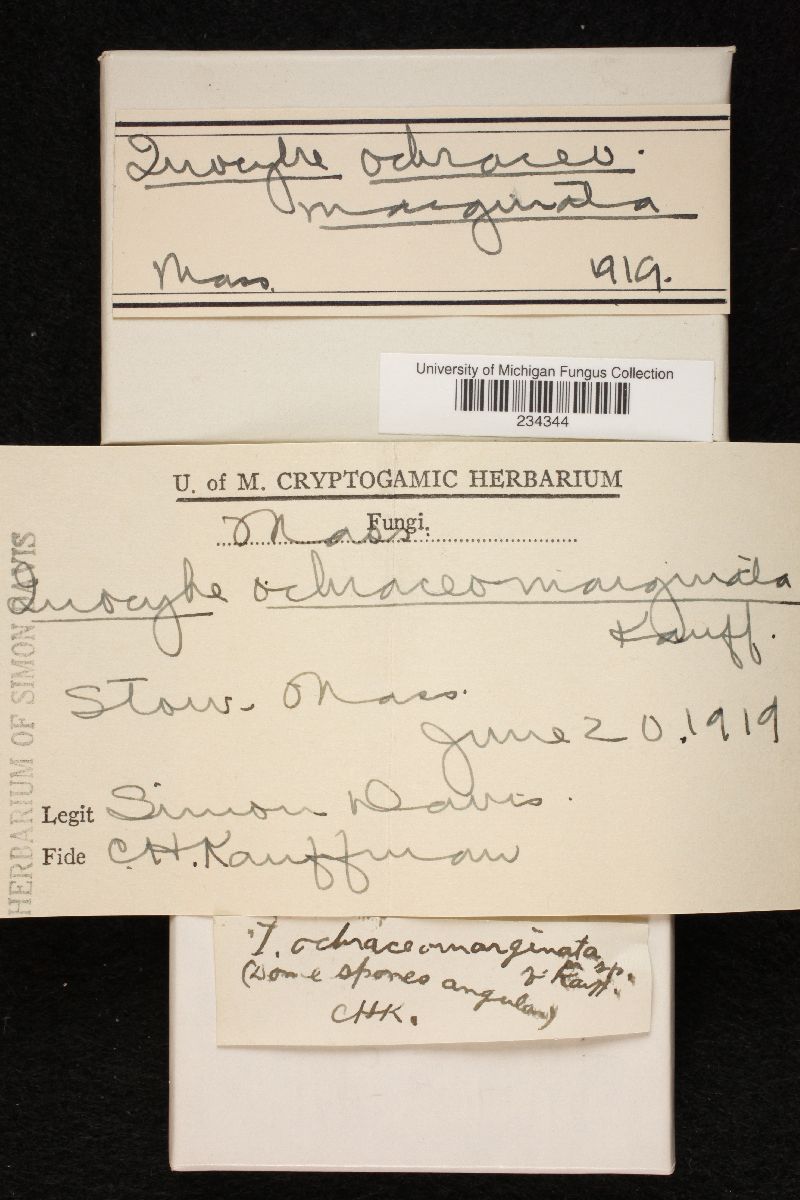 Inocybe ochraceo-
marginata
Mass. 1919.
University of Michigan Fungus Collection
234344
U. of M. CRYPTOGAMIC HERBARIUM
Fungi.
Mass.
Inocybe ochraceomarginata
Kauff.
Stow. Mass.
June 20, 1919
Legit Simon Davis.
Fide C.H. Kauffman
HERBARIUM OF SIMON DAVIS
I. ochraceomarginata
sp.
Kauff.
(Some spores angular)
CHK.